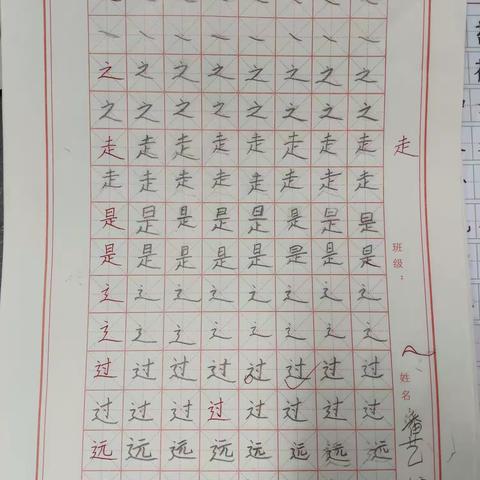 之之之之之之之之
之之之之之之之之
走走走走走走走走
走走走走走走走走
是是是是是是是是
是是是是是是是是
辶辶辶辶辶辶辶辶
辶辶辶辶辶辶辶辶
过过过过过过过过
过过过过过过过过
远远远远远远远远
走
班级：
姓名